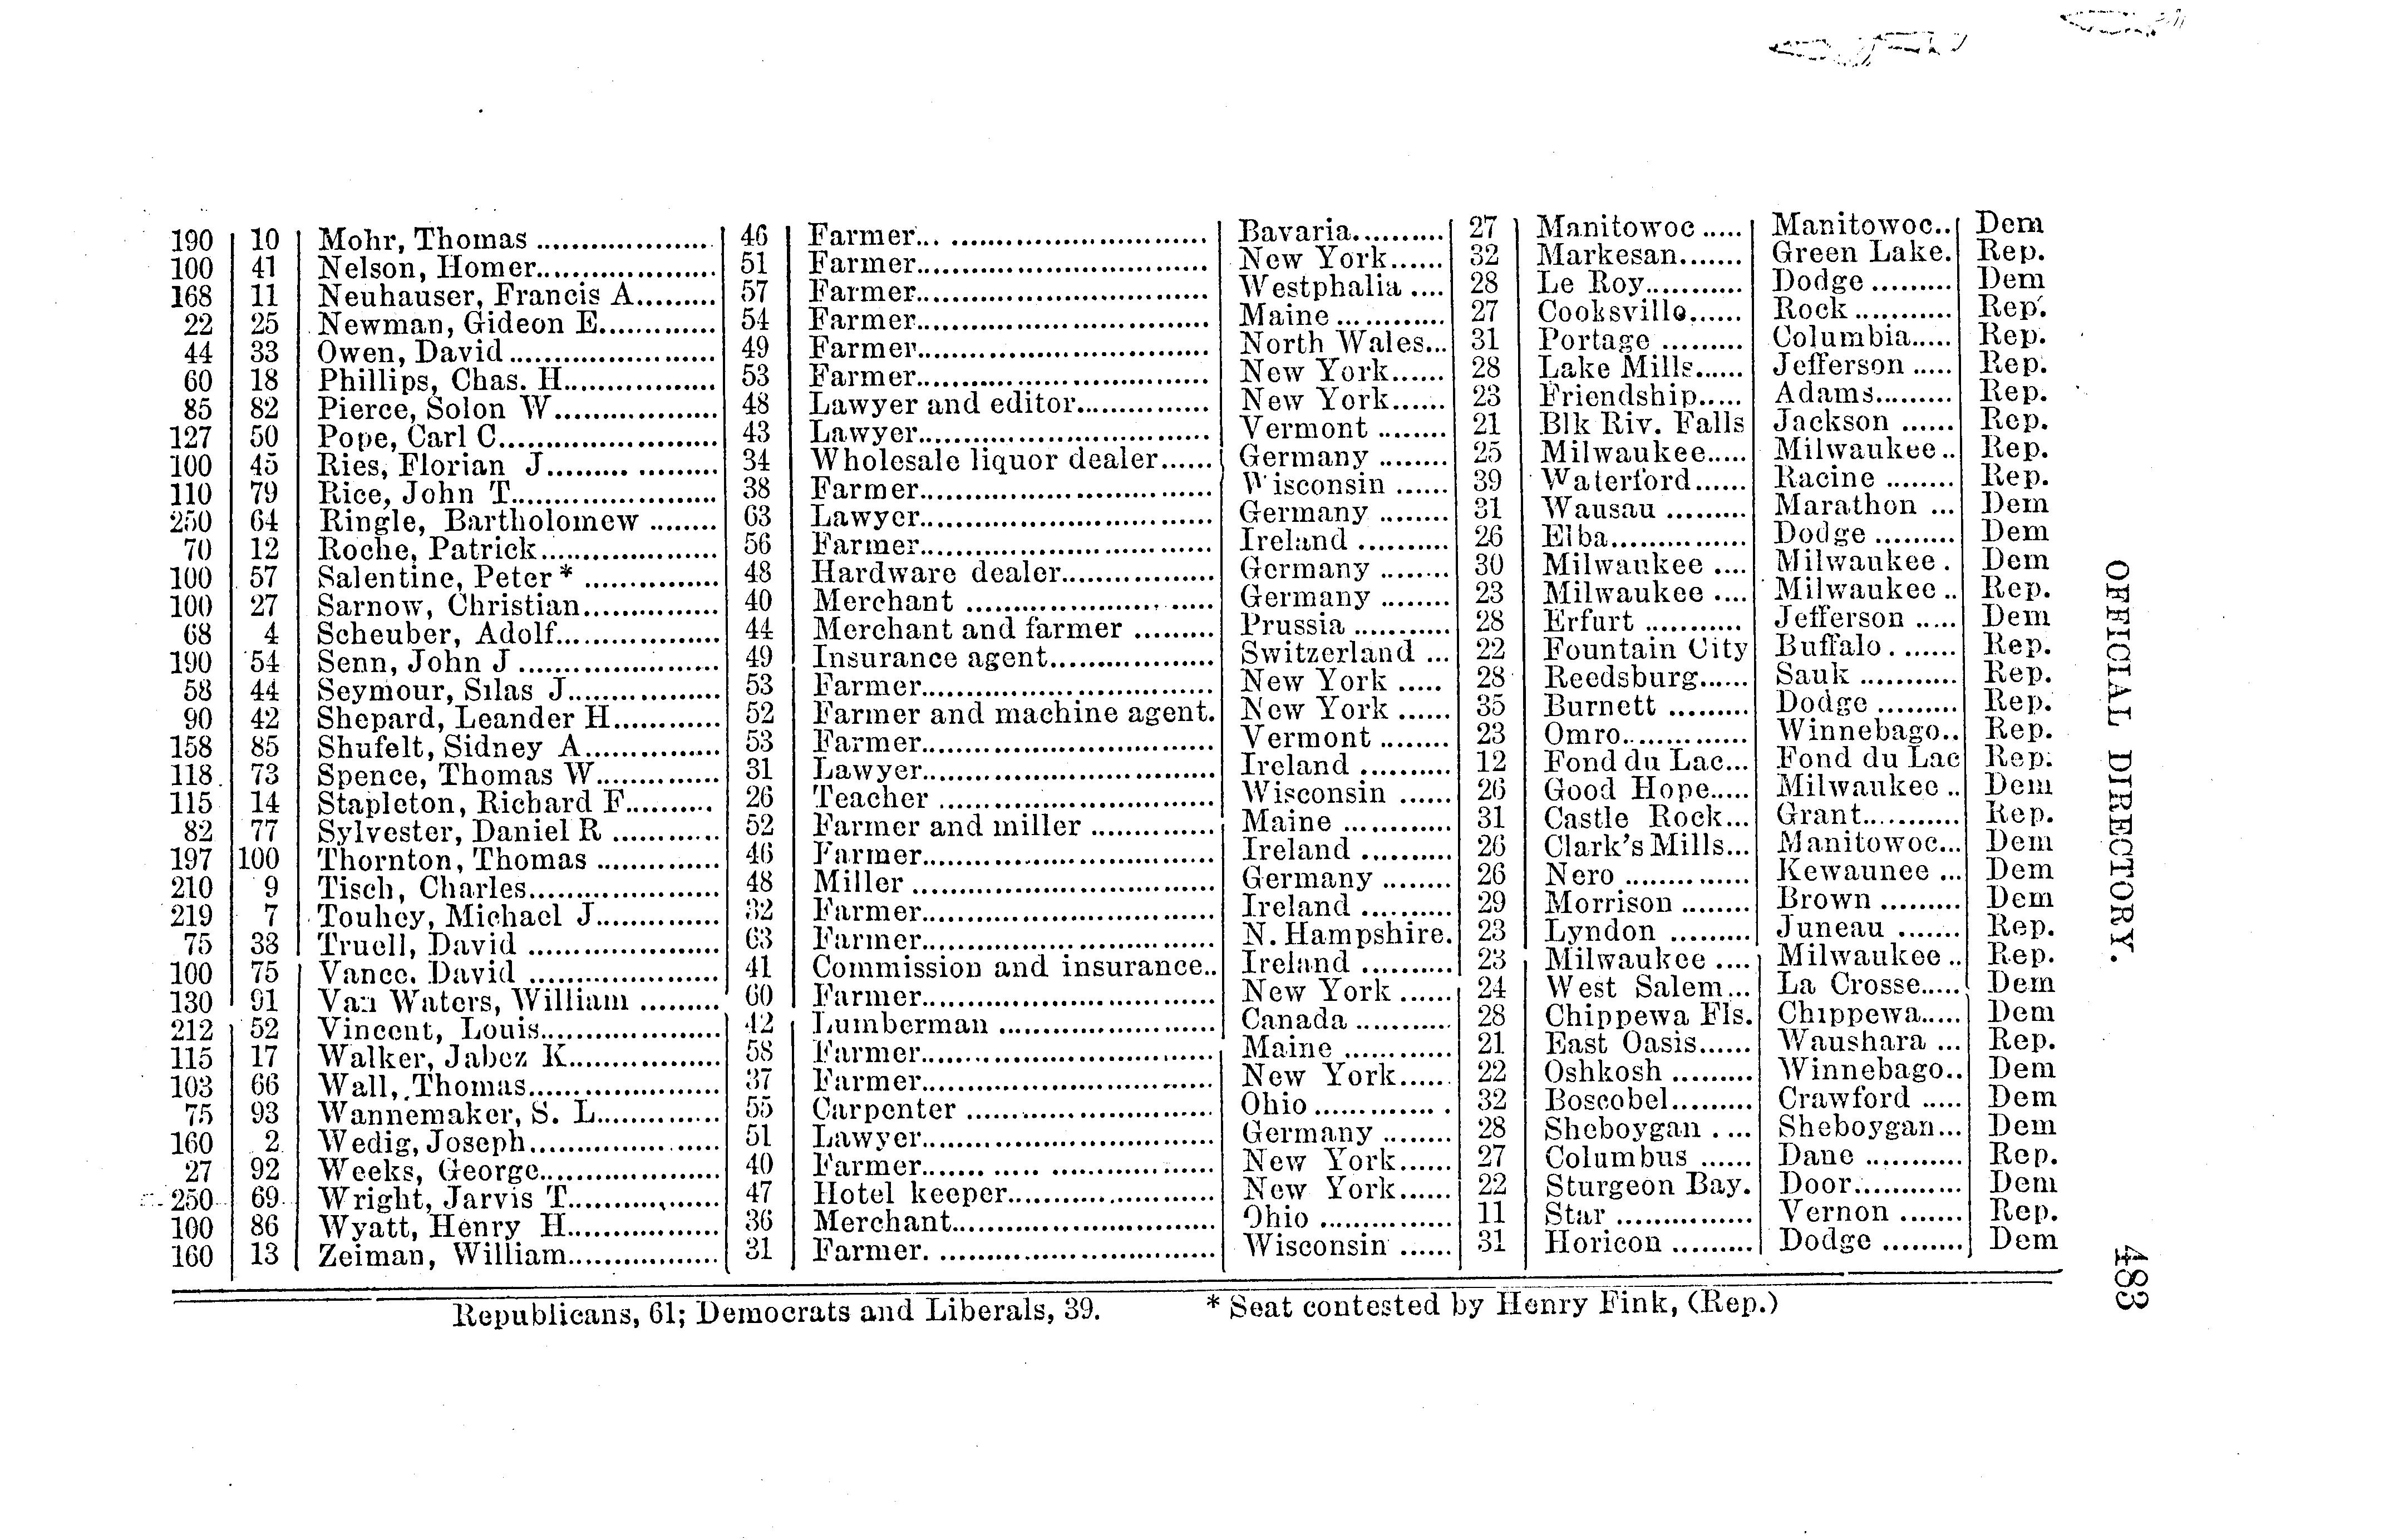 190 10 Mohr, Thomas .................... 46 Farmer... ............................ Bavaria.......... 27 Manitowoc ..... Manitowoc.. Dem
100 41 Nelson, Homer..................... 51 Farmer................................ New York...... 32 Markesan....... Green Lake. Rep.
168 11 Neuhauser, Francis A......... 57 Farmer................................ Westphalia .... 28 Le Roy........... Dodge ......... Dem
22 25 Newman, Gideon E............. 54 Farmer................................ Maine ............ 27 Cooksville...... Rock ........... Rep.
44 33 Owen, David ....................... 49 Farmer................................ North Wales... 31 Portage ......... Columbia..... Rep.
60 18 Phillips, Chas. H................. 53 Farmer................................ New York...... 28 Lake Mills...... Jefferson ..... Rep.
85 82 Pierce, Solon W.................. 48 Lawyer and editor............... New York...... 23 Friendship..... Adams......... Rep.
127 50 Pope, Carl C........................ 43 Lawyer................................ Vermont ........ 21 Blk Riv. Falls Jackson ...... Rep.
100 45 Ries, Florian J......... ......... 34 Wholesale liquor dealer...... Germany ........ 25 Milwaukee..... Milwaukee.. Rep.
110 79 Rice, John T....................... 38 Farmer................................ Wisconsin ...... 39 Waterford...... Racine ........ Rep.
250 64 Ringle, Bartholomew ........ 63 Lawyer................................ Germany ........ 31 Wausau ......... Marathon ... Dem
70 12 Roche, Patrick.................... 56 Farmer................................ Ireland .......... 26 Elba............... Dodge ......... Dem
100 57 Salentine, Peter* ............... 48 Hardware dealer................. Germany ........ 30 Milwaukee .... Milwaukee . Dem
100 27 Sarnow, Christian............... 40 Merchant ........................... Germany ........ 23 Milwaukee .... Milwaukee .. Rep.
68 4 Scheuber, Adolf.................. 44 Merchant and farmer ......... Prussia ........... 28 Erfurt ........... Jefferson ..... Dem
190 54 Senn, John J ...................... 49 Insurance agent.................. Switzerland ... 22 Fountain City Buffalo. ....... Rep.
58 44 Seymour, Silas J................. 53 Farmer................................ New York ..... 28 Reedsburg...... Sauk ........... Rep.
90 42 Shepard, Leander H............ 52 Farmer and machine agent. New York ...... 35 Burnett ......... Dodge ......... Rep.
158 85 Shufelt, Sidney A............... 53 Farmer................................ Vermont ........ 23 Omro............. Winnebago.. Rep.
118 73 Spence, Thomas W.............. 31 Lawyer................................ Ireland .......... 12 Fond du Lac... Fond du Lac Rep.
115 14 Stapleton, Richard F.......... 26 Teacher .............................. Wisconsin ...... 26 Good Hope..... Milwaukee .. Dem
82 77 Sylvester, Daniel R ............ 52 Farmer and miller .............. Maine ............ 31 Castle Rock... Grant........... Rep.
197 100 Thornton, Thomas .............. 46 Farmer................................ Ireland .......... 26 Clark's Mills... Manitowoc... Dem
210 9 Tisch, Charles..................... 48 Miller ................................. Germany ........ 26 Nero .............. Kewaunee ... Dem
219 7 Touhey, Michael J.............. 32 Farmer................................ Ireland .......... 29 Morrison ........ Brown ......... Dem
75 38 Truell, David ..................... 63 Farmer................................ N. Hampshire. 23 Lyndon ......... Juneau ....... Rep.
100 75 Vance, David ..................... 41 Commission and insurance.. Ireland .......... 23 Milwaukee .... Milwaukee .. Rep.
130 91 Van Waters, William ......... 60 Farmer................................ New York ...... 24 West Salem... La Crosse..... Dem
212 52 Vincent, Louis.................... 42 Lumberman ....................... Canada ........... 28 Chippewa Fls. Chippewa..... Dem
115 17 Walker, Jabez K................. 58 Farmer................................ Maine ............ 21 East Oasis...... Waushara ... Rep.
103 66 Wall, Thomas..................... 37 Farmer................................ New York...... 22 Oshkosh ......... Winnebago.. Dem
75 93 Wannemaker, S. L.............. 55 Carpenter ........................... Ohio ............. . 32 Boscobel......... Crawford ..... Dem
160 2 Wedig, Joseph..................... 51 Lawyer................................ Germany ........ 28 Sheboygan . ... Sheboygan... Dem
27 92 Weeks, George.................... 40 Farmer....... ..... .................. New York...... 27 Columbus ...... Dane ........... Rep.
250 69 Wright, Jarvis T................. 47 Hotel keeper....................... New York...... 22 Sturgeon Bay. Door............ Dem
100 86 Wyatt, Henry H................. 36 Merchant............................. Ohio ............... 11 Star ............... Vernon ....... Rep.
160 13 Zeiman, William................. 31 Farmer. .............................. Wisconsin ...... 31 Horicon ......... Dodge ......... Dem
Republicans, 61; Democrats and Liberals, 39. * Seat contested by Henry Fink, (Rep.)
OFFICIAL DIRECTORY.
483